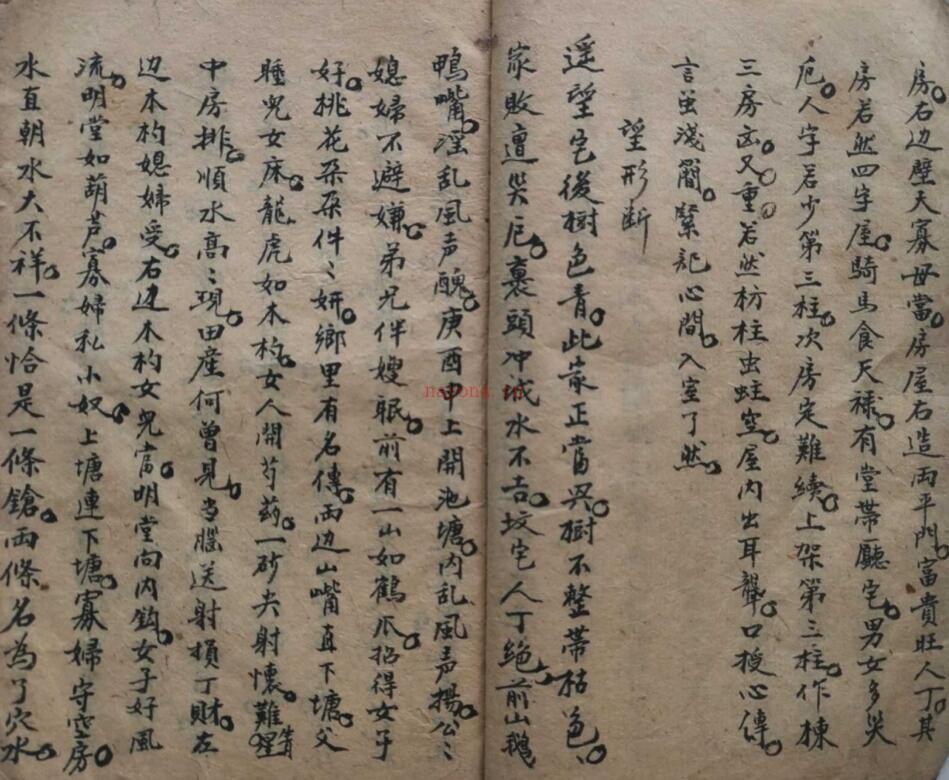 房。右边壁天寡母當。房屋右造両平門。富貴旺人丁。其
房若然四字屋。騎馬食天祿。有堂帶廳宅。男女多災
厄。人字若少第三柱。次房定難續。上架第三柱。作棟
三房凶。又重。若然枋柱虫蛀空。屋内出耳聾。口授心傳。
言虽淺簡。緊記心間。入室了然。
望形断
遥望宅後樹色青。此家正當兴。樹不整帶枯色。
家敗遭災厄。裹頭冲滅水不吉。坟宅人丁絶。前山鵝
鴨嘴。淫乱風声醜。庚酉甲上開池塘。内乱風声揚。公〻
媳婦不避嫌。弟兄伴嫂眠。前有一山如鶴爪。招得女子
好。桃花朶朶件〻妍。鄉里有名傳。両边山嘴直下塘。父
睡兒女床。龍虎如木杓。女人開芍葯。一砂尖射懷。難
中房排。順水高〻現。田産何曾見。当腦送射損丁財。左
边木杓媳婦受。右边木杓女兒當。明堂向内鈎。女子好風
流。明堂如葫芦。寡婦私小奴。上塘連下塘。寡婦守空房
水直朝水大不祥。一條恰是一條鎗。両條名為了穴水。
nabong.cn